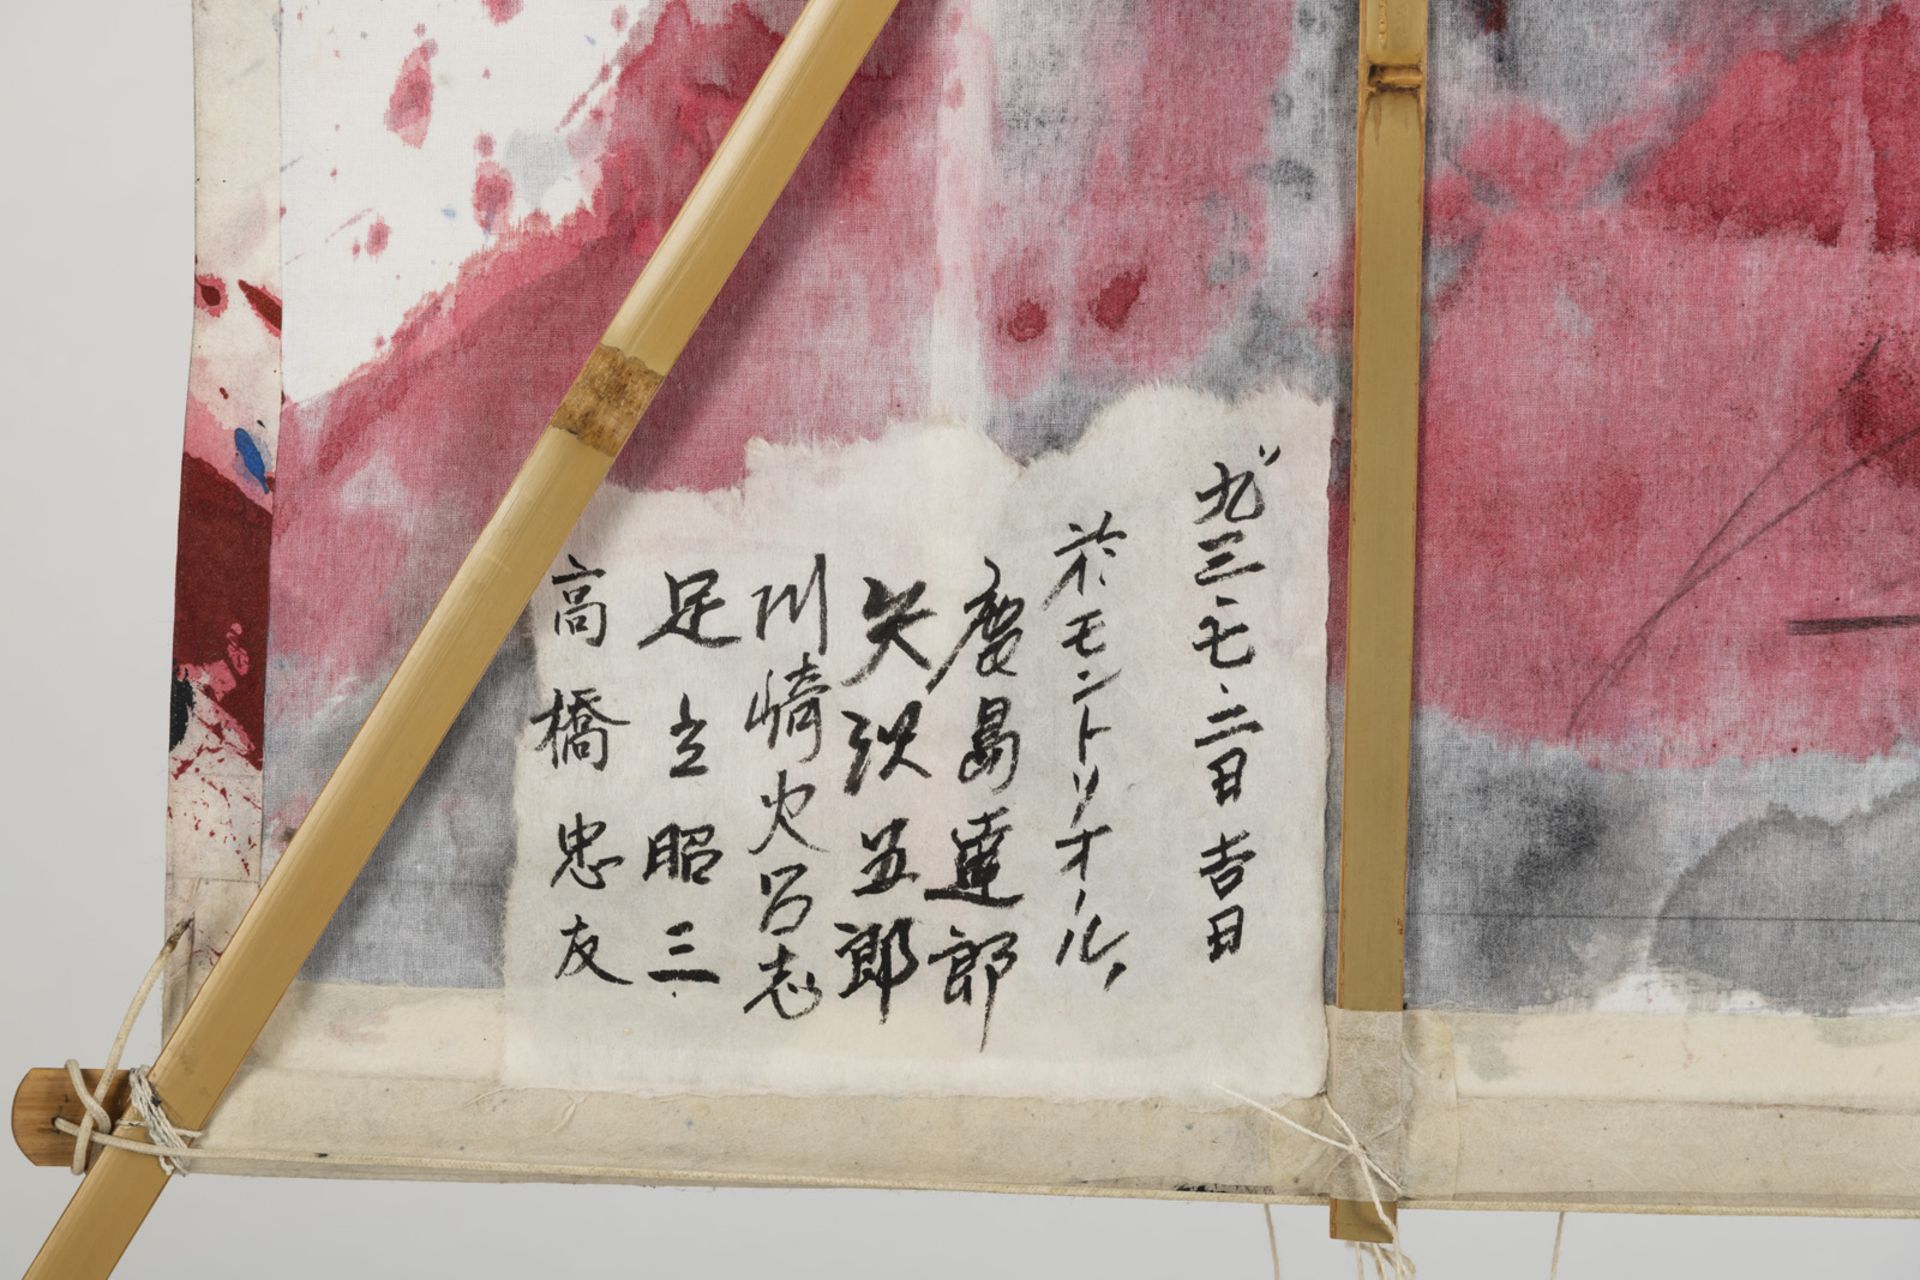 九三・七・二日吉日
於モントリオール,
慶島達郎
矢沢五郎
川崎火呂志
足立昭三
高橋忠友